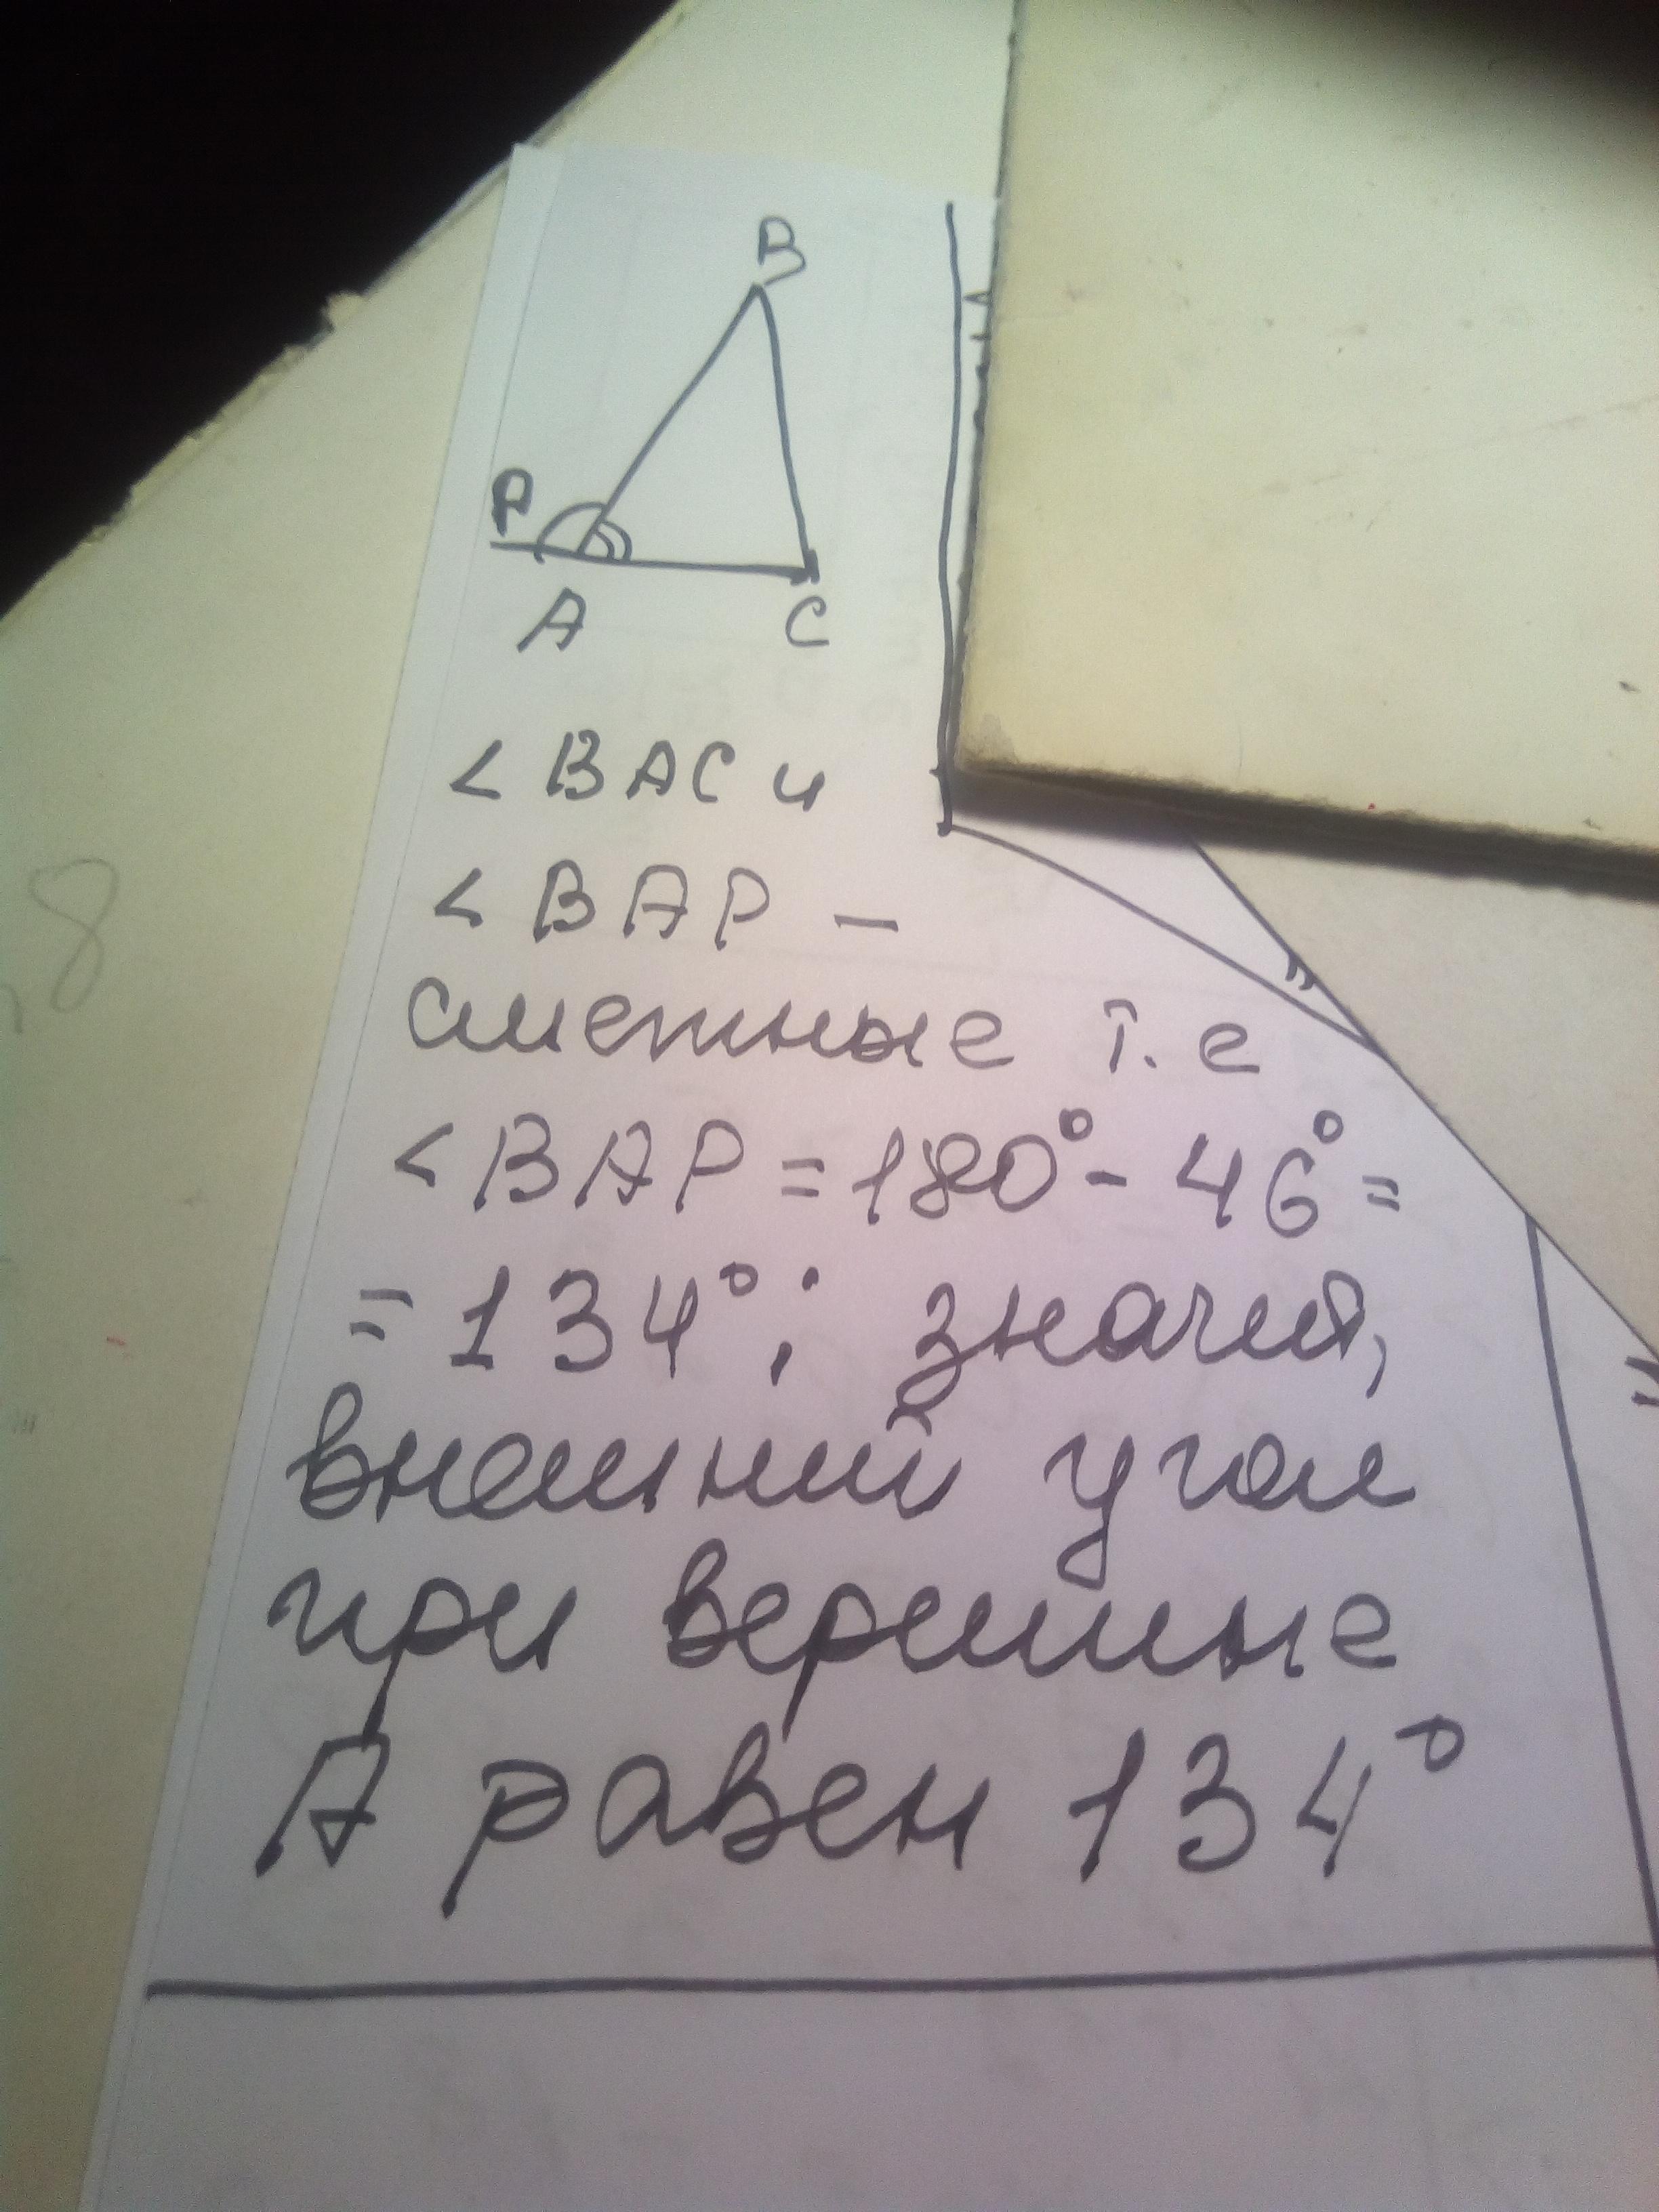 B
P
A
C
< BAC и
< BAP –
смежные т. е
< BAP = 180° - 46° =
= 134° ; значит,
внешний угол
при вершине
A равен 134°
8